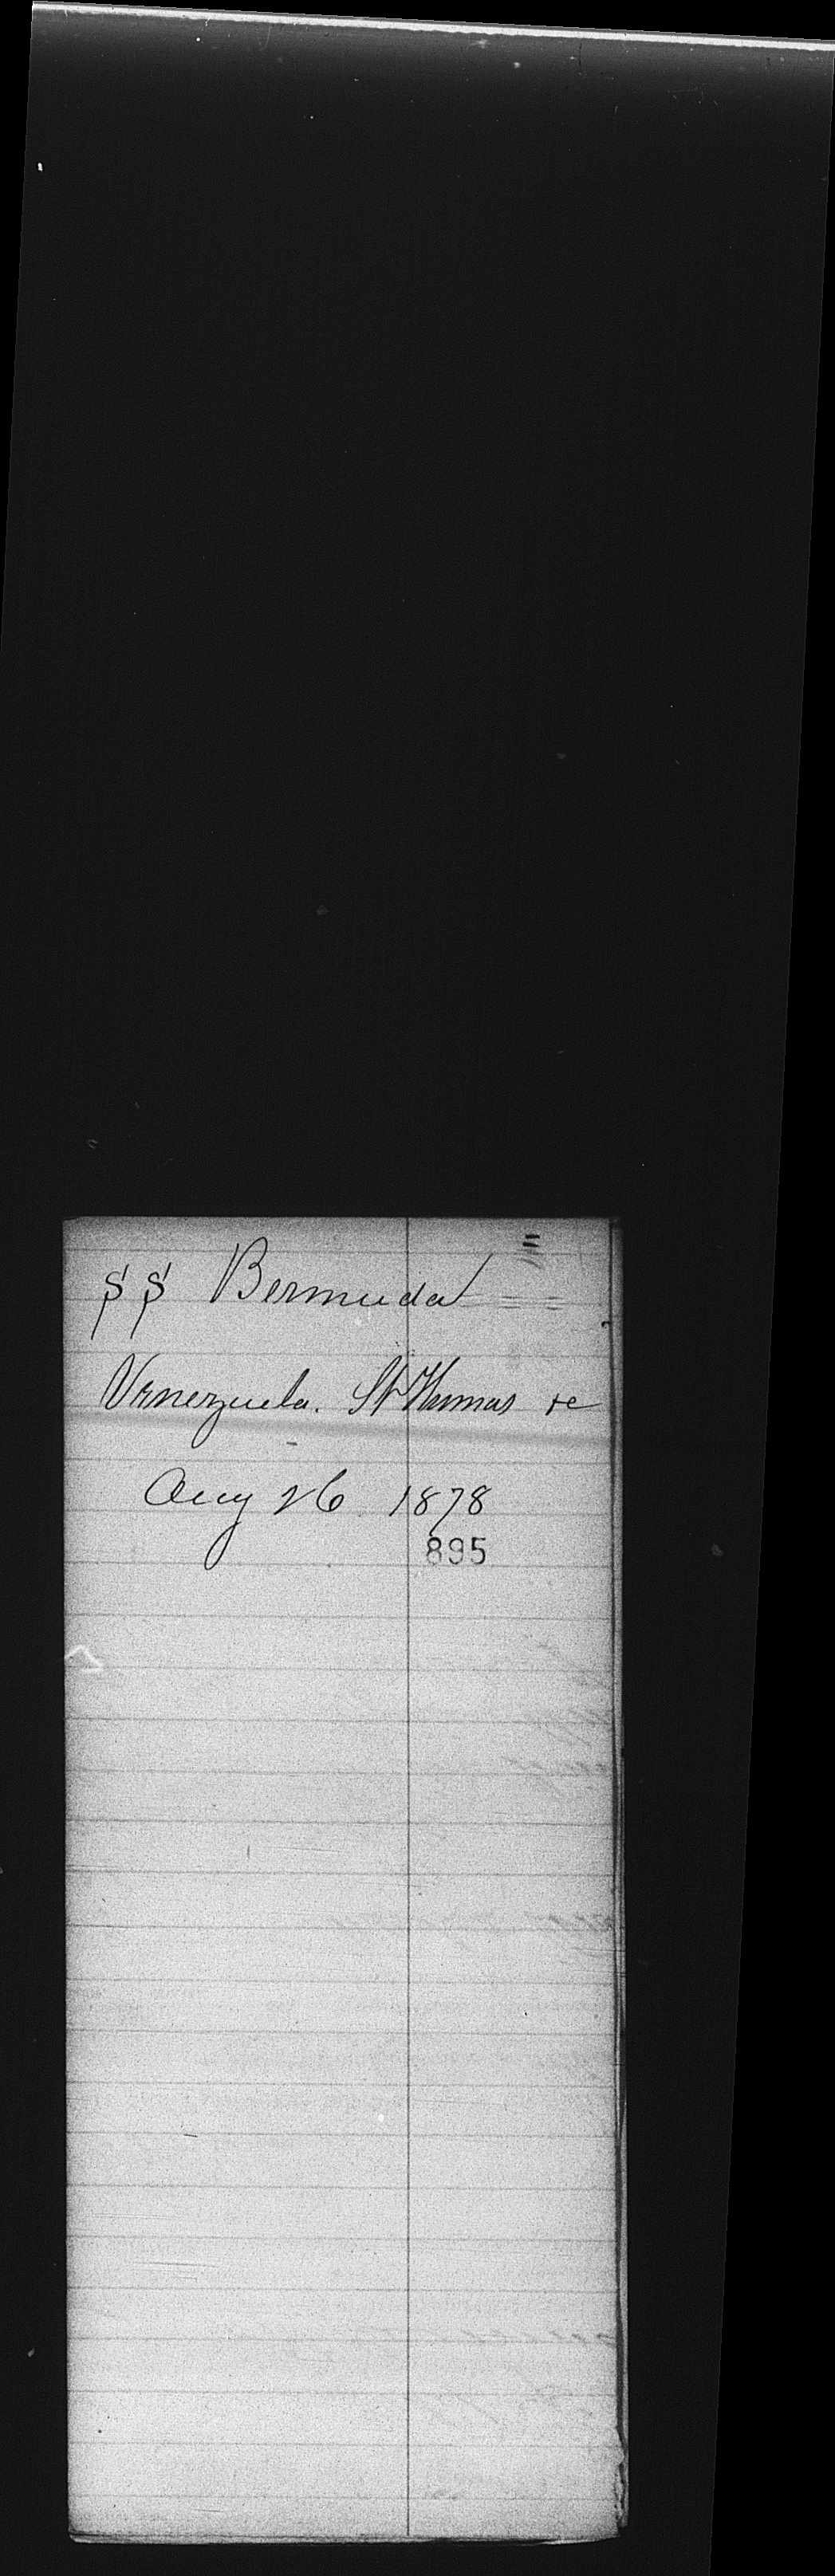 SS Bermuda
Venezuela. St Thomas &c
Aug 26 1878
895